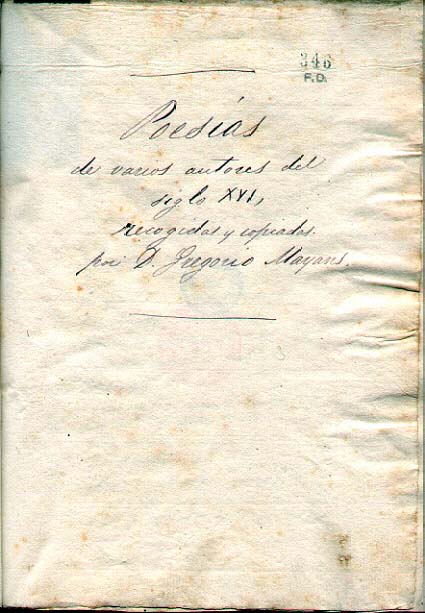 346
F.D.
Poesías
de varios autores del
siglo XVI,
recogidas y copiadas.
por D. Gregorio Mayans.